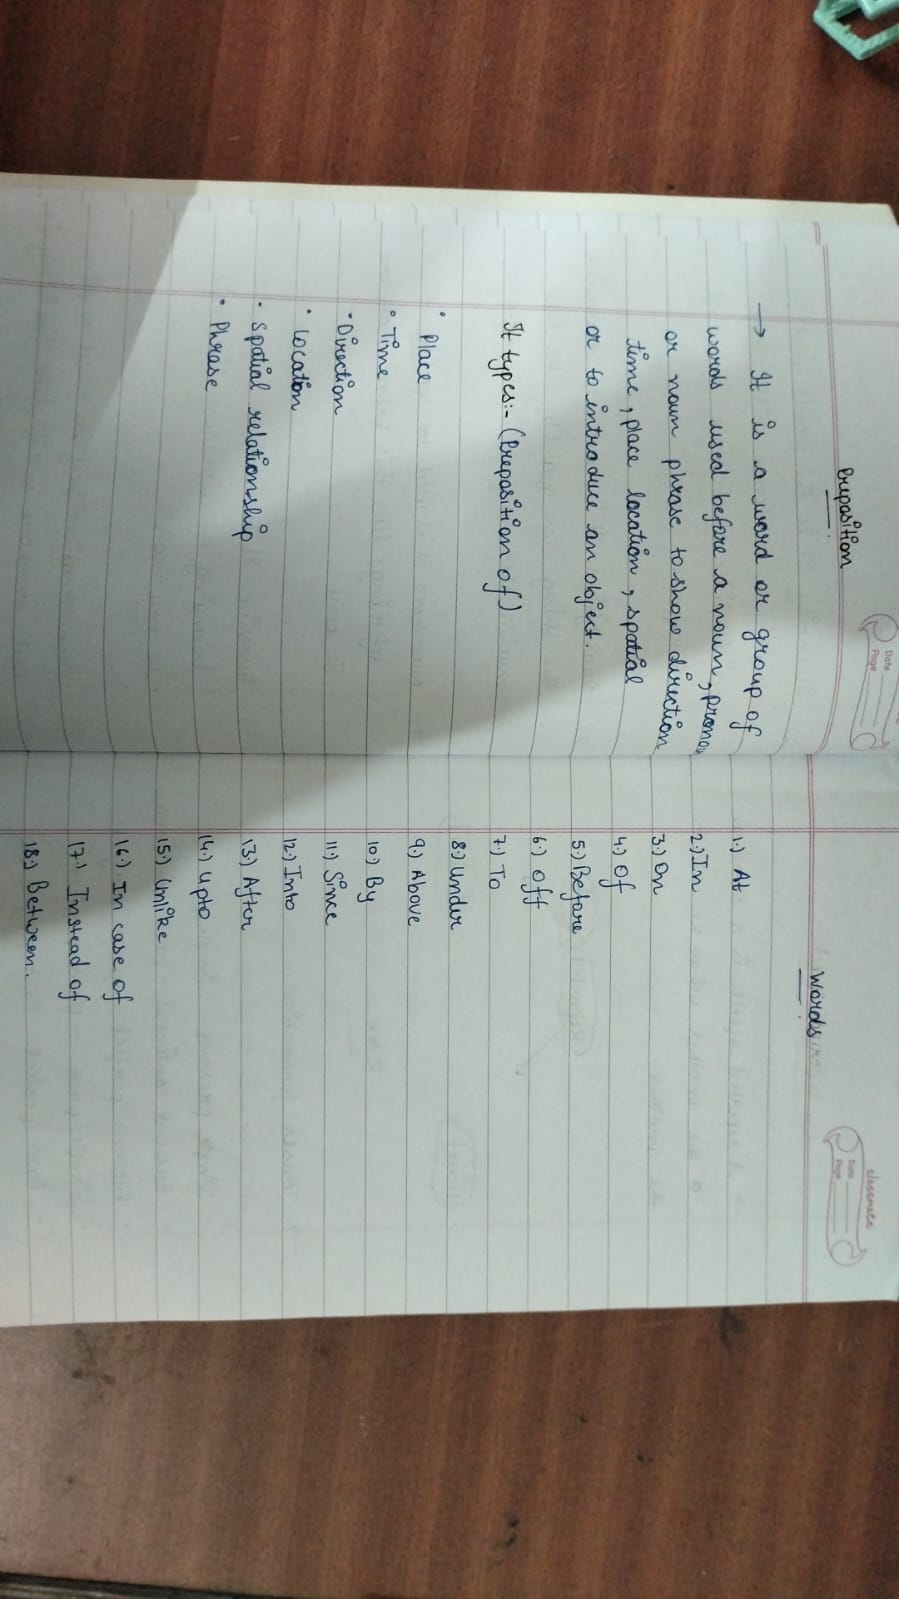 Date
Page
Preposition
→ It is a word or group of
words used before a noun, pronou
or noun phrase to show direction
time, place location, spatial
or to introduce an object.
It types:- (Preposition of)
• Place
• Time
• Direction
• Location
• Spatial relationship
• Phrase
classmate
Date
Page
Words
1.) At
2.) In
3.) On
4.) Of
5.) Before
6.) Off
7.) To
8.) Under
9.) Above
10.) By
11.) Since
12.) Into
13.) After
14.) Upto
15.) Unlike
16.) In case of
17.) Instead of
18.) Between.